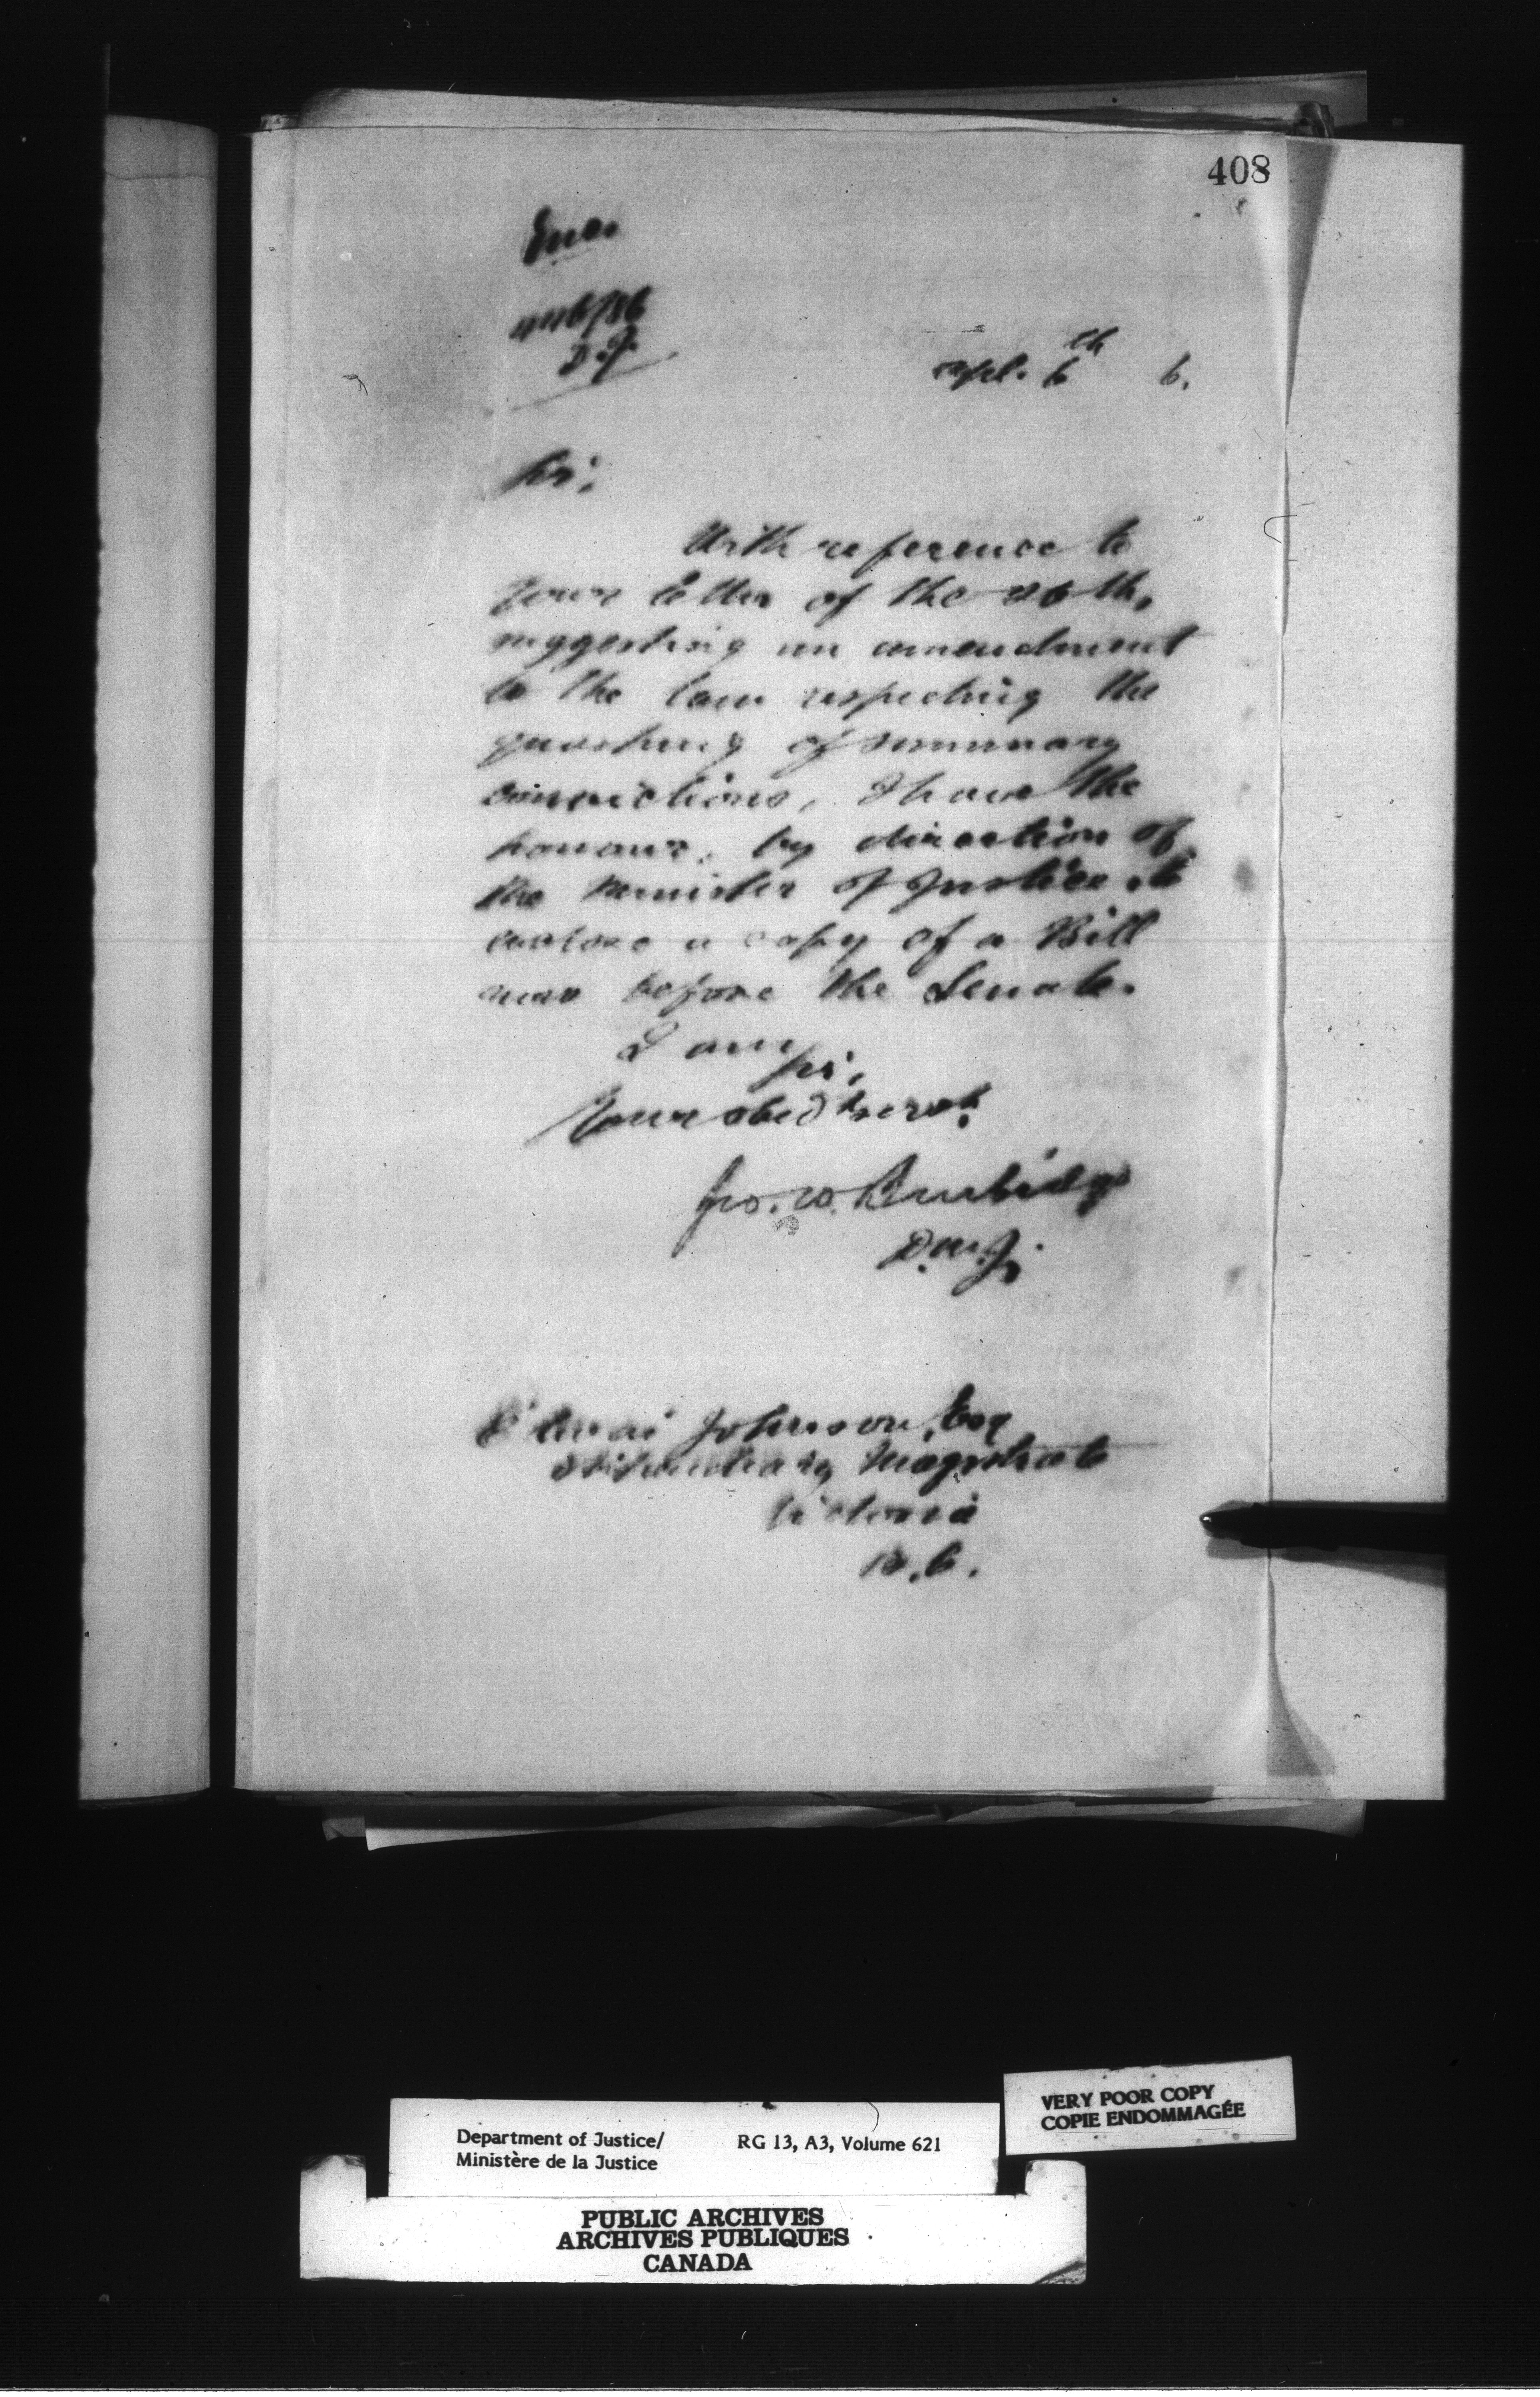 408
Enc.
446/86
D.J.
Apl. 6th 6.
Sir,
With reference to
your letter of the 26th,
suggesting an amendment
to the law respecting the
quashing of summary
convictions, I have the
honour, by direction of
the Minister of Justice, to
enclose a copy of a Bill
now before the Senate.
I am
Sir,
Your obedt servt
Geo. W. Burbidge
D.M.J.
Johnson, Esq
Stipendiary Magistrate
Victoria
B.C.
VERY POOR COPY
COPIE ENDOMMAGÉE
Department of Justice/ RG 13, A3, Volume 621
Ministère de la Justice
PUBLIC ARCHIVES
ARCHIVES PUBLIQUES
CANADA